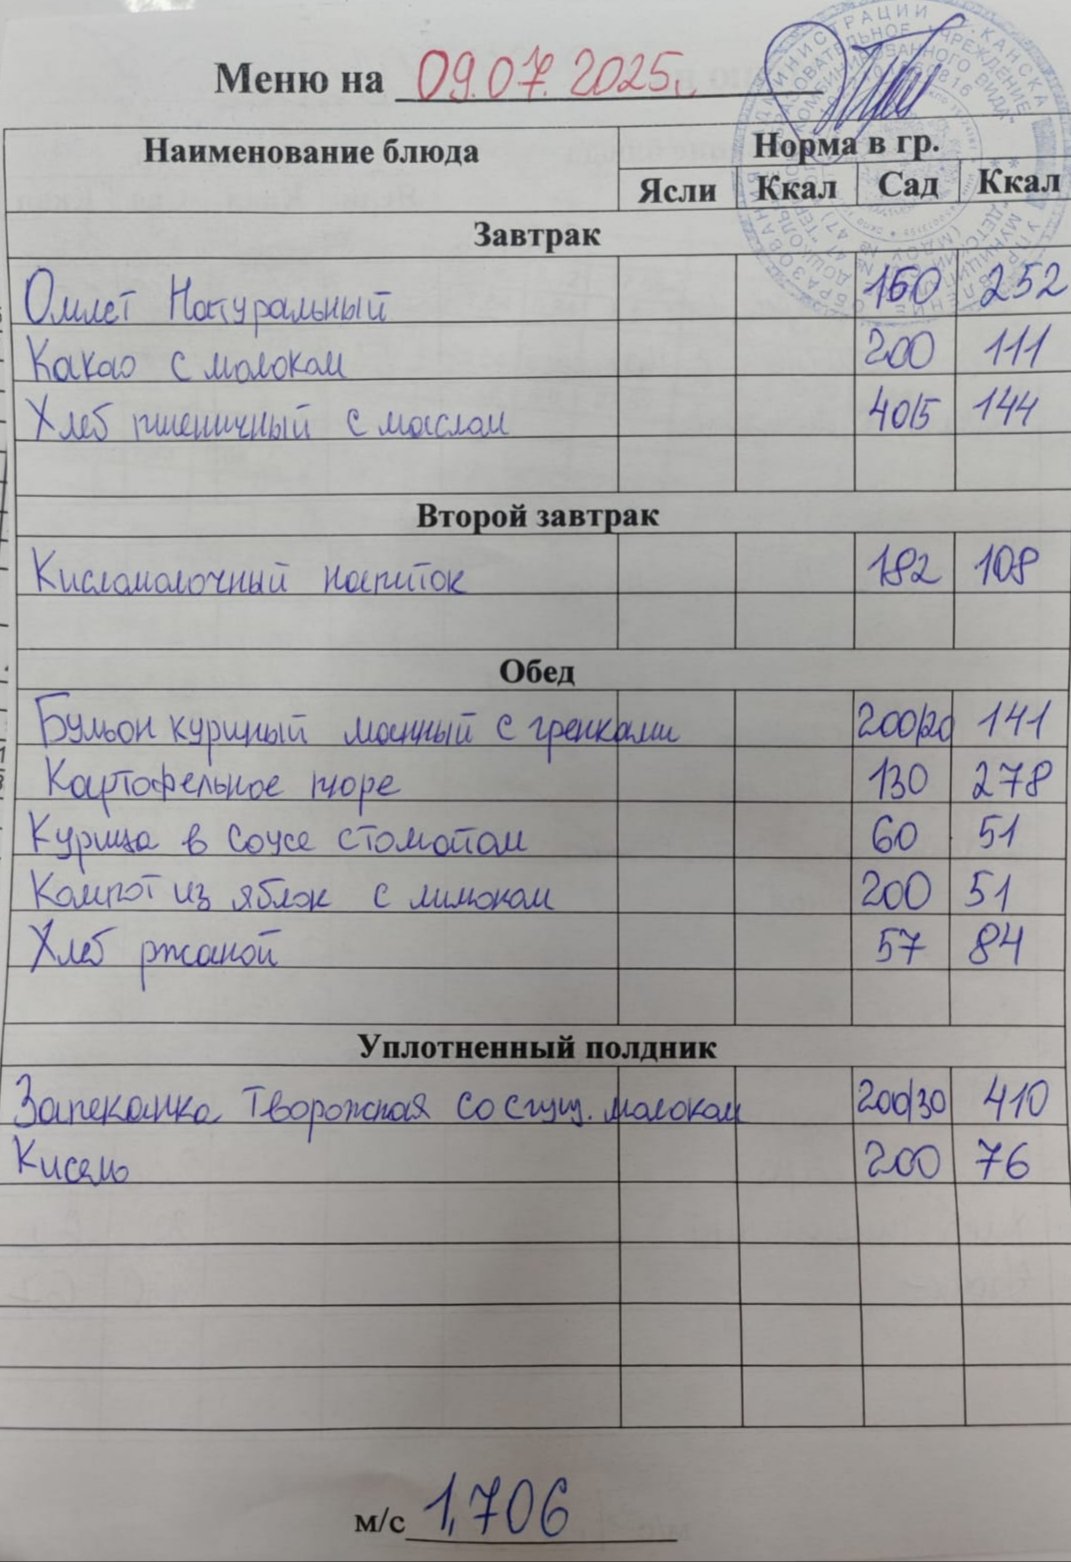 Меню на 09.07.2025г.
Наименование блюда Норма в гр.
Ясли Ккал Сад Ккал
Завтрак
Омлет Натуральный 150 252
Какао с молоком 200 111
Хлеб пшеничный с маслом 40/5 144
Второй завтрак
Кисломолочный напиток 182 108
Обед
Бульон куриный манный с гренками 200/20 141
Картофельное пюре 130 278
Курица в соусе с томатом 60 51
Компот из яблок с лимоном 200 51
Хлеб ржаной 57 84
Уплотненный полдник
Запеканка Творожная со сгущ. молоком 200/30 410
Кисель 200 76
м/с 1,706